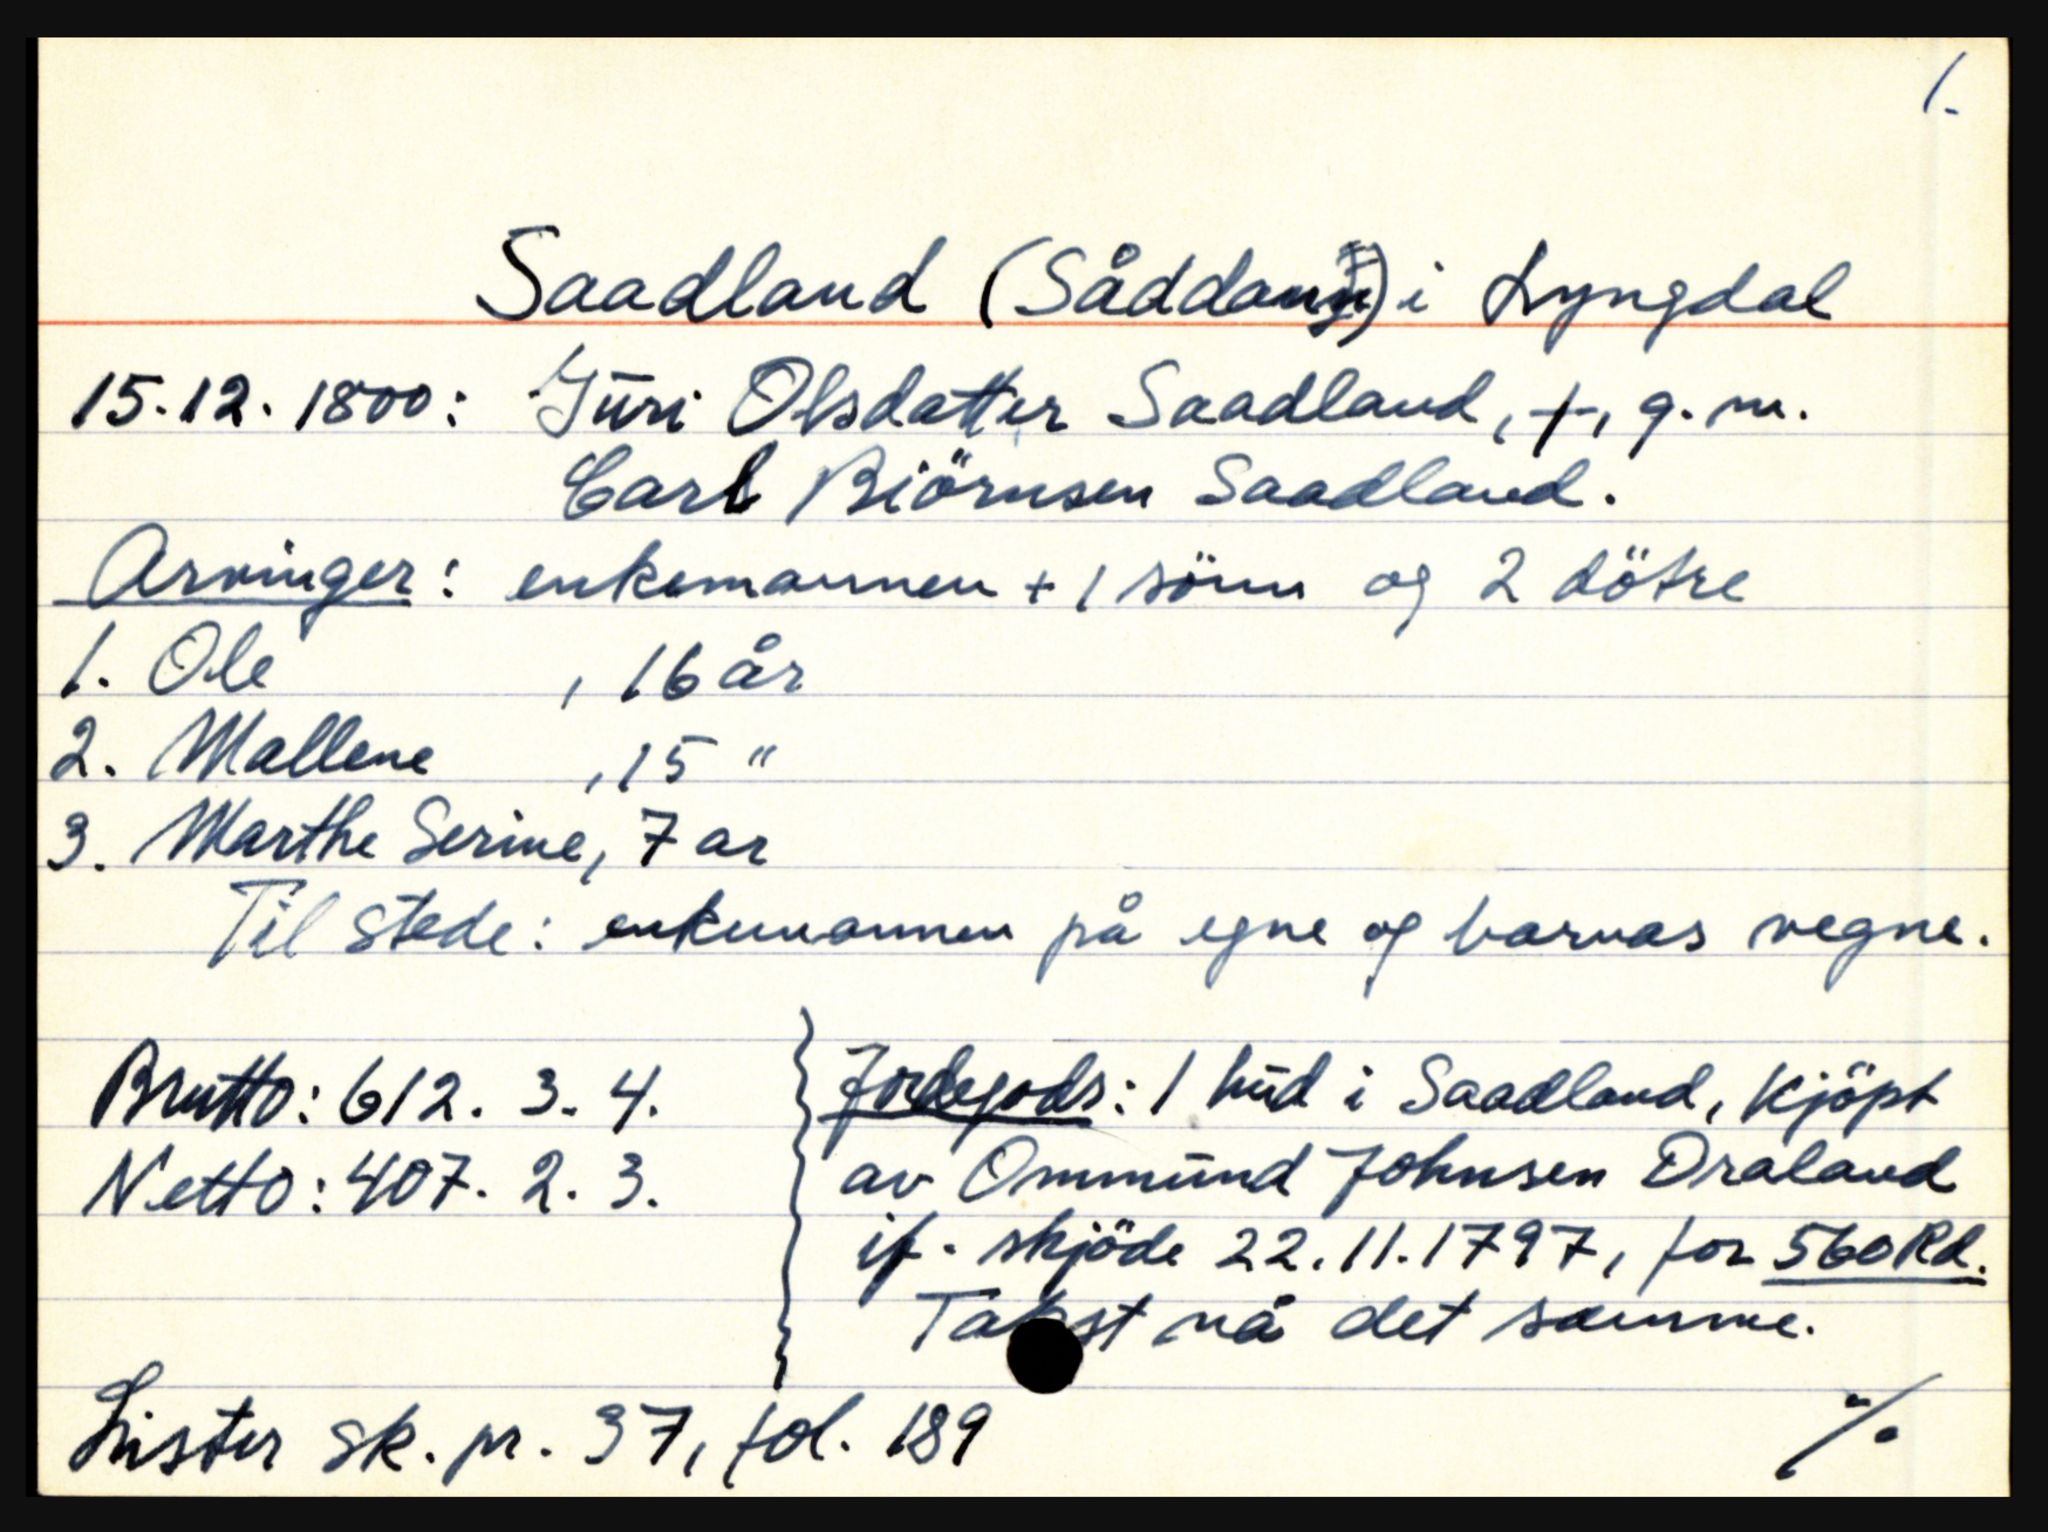 1.
Saadland (Såddan) i Lyngdal
15.12.1800: Guri Olsdatter Saadland, +, g. m.
Carl Biörnsen Saadland.
Arvinger: enkemannen + 1 sönn og 2 dötre
1. Ole , 16 år
2. Mallene , 15 "
3. Marthe Serine, 7 ar
Til stede: enkemannen på egne og barnas vegne.
Brutto: 612. 3. 4.
Netto: 407. 2. 3.
Jordegods: 1 hud i Saadland, kjöpt
av Ommund Johnsen Draland
if. skjöde 22.11.1797, for 560 Rd.
Takst nå det samme.
Lister sk. pr. 37, fol. 189
·/.